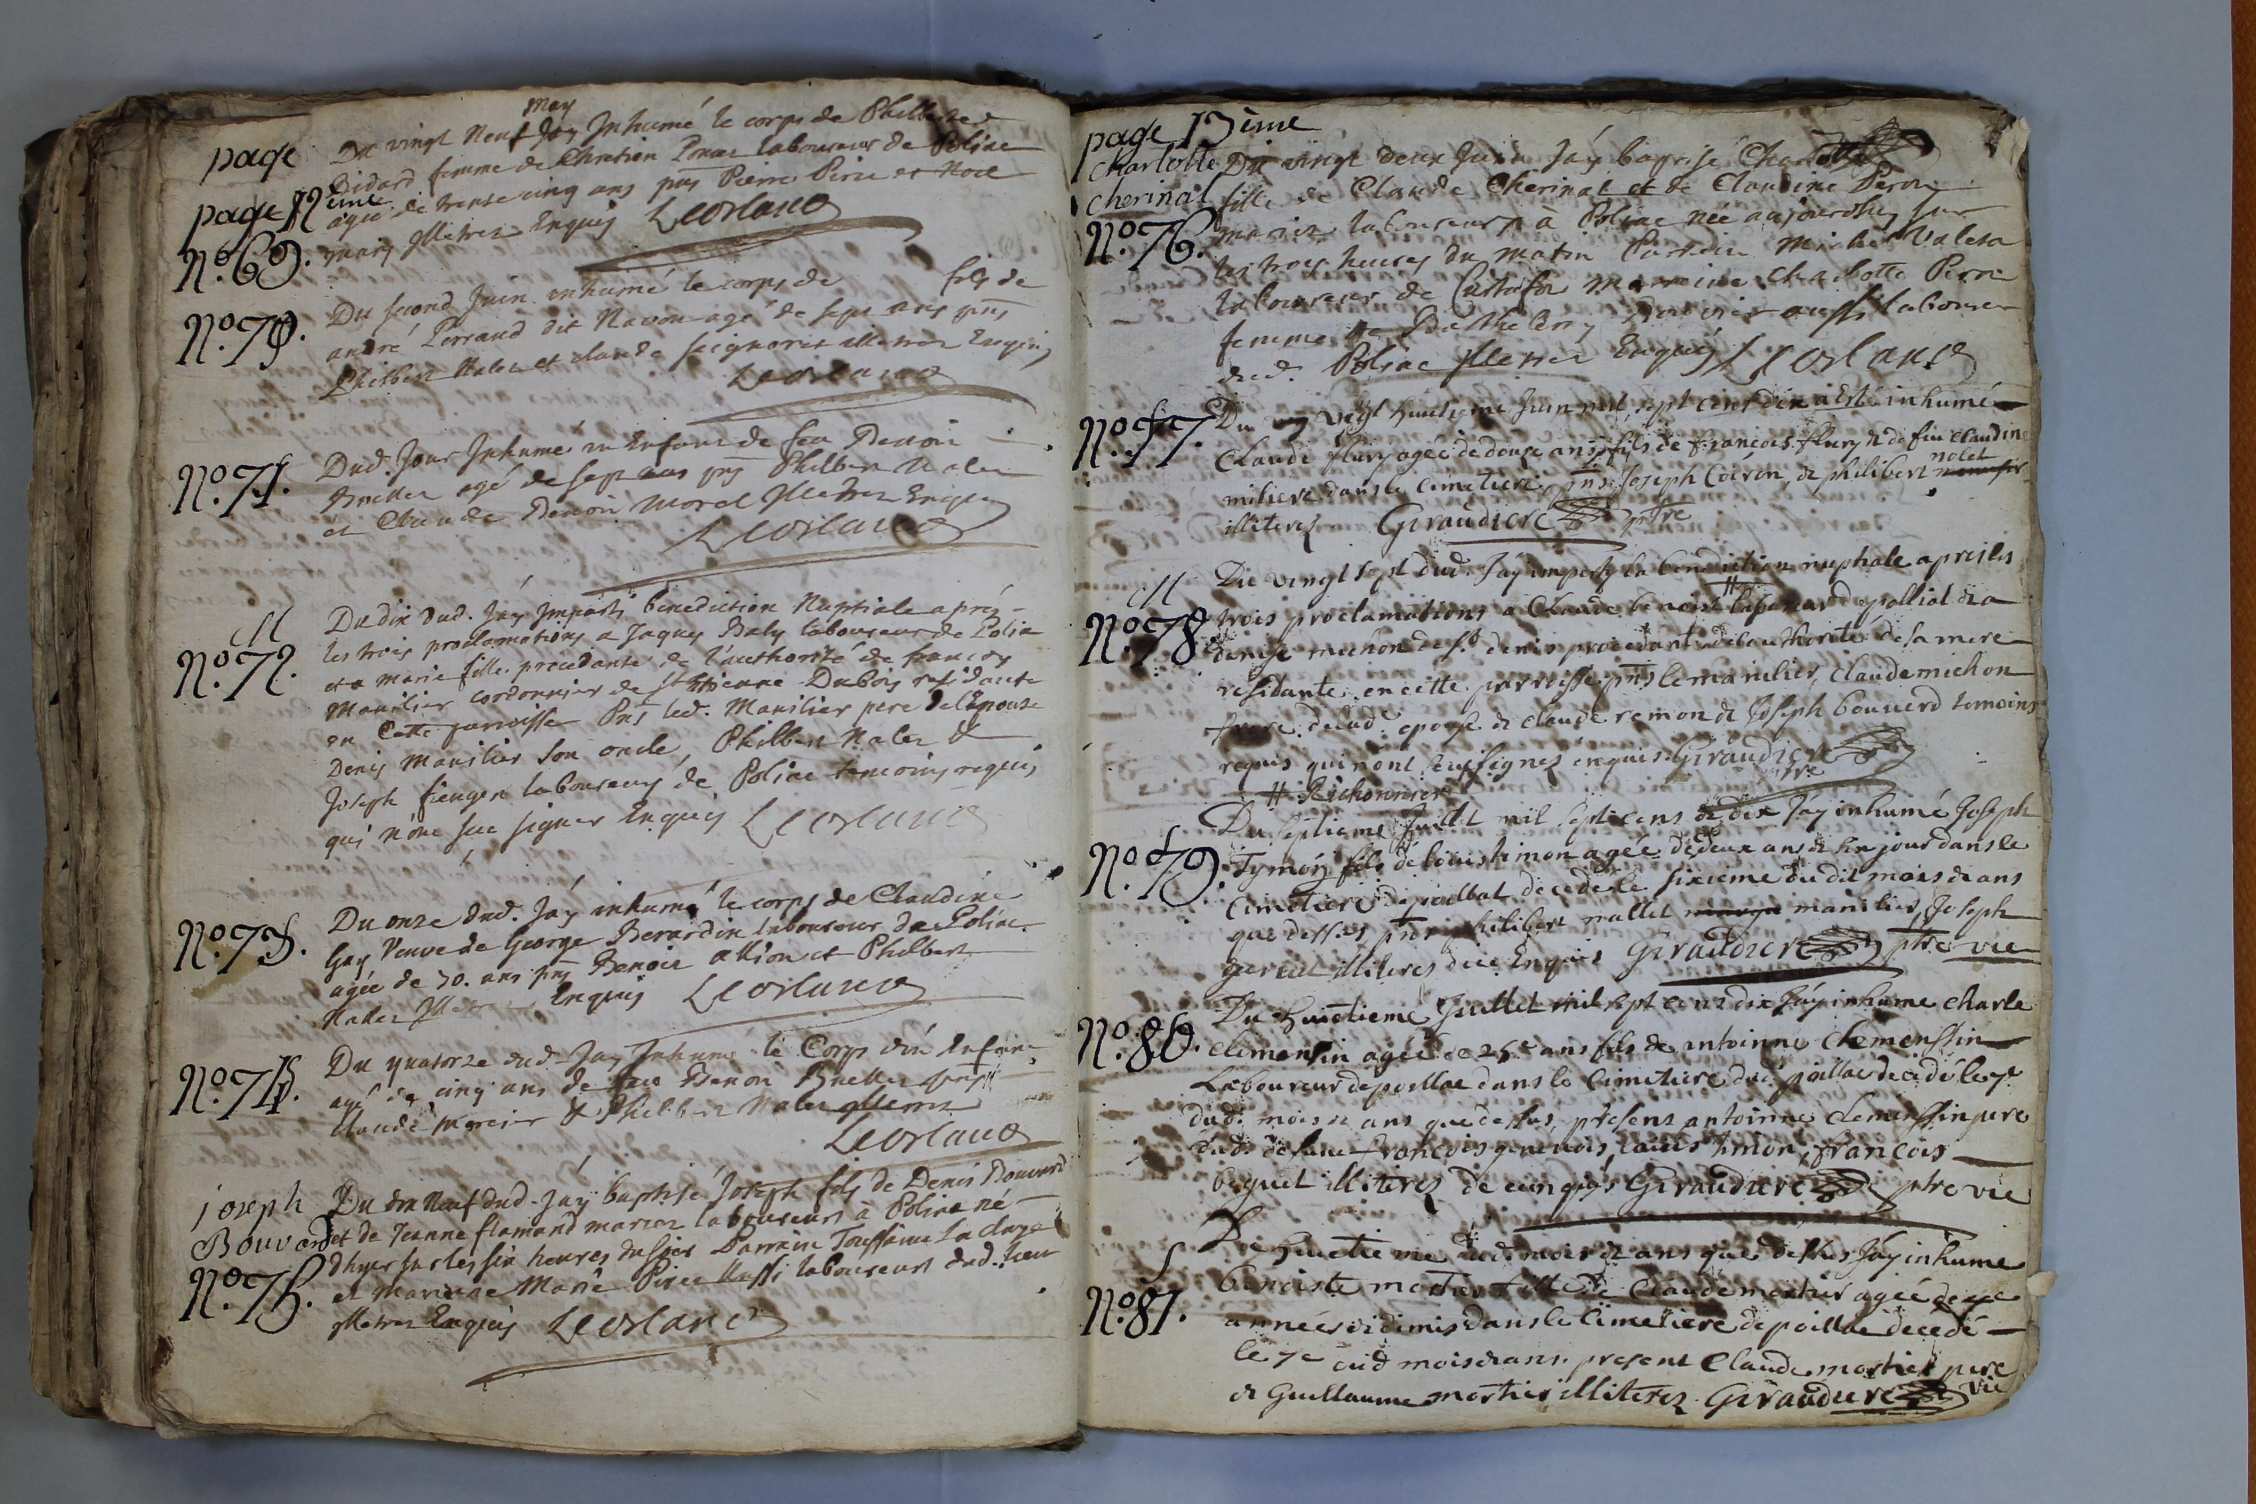 page
page 12 eme
No. 69.
may
Du vingt Neuf Jay Inhumé le corps de Philberte
Bidard femme de Chretien Ponar laboureur de Poliac
agée de trente cinq ans pnts Pierre Pirie et Noel
mary Illetrez Enquis Leorlane
No. 70.
Du second Juin inhumé le corps de fils de
andré Perraud dit Navon agé de sept ans pnts
Philbert Nalez et claude seignoret illetrez Enquis
Leorlane
No. 71.
Dud. Jour Inhumé un Enfant de feu Benoit
Bretter agé de sept ans pnts Philbert Nalez
et Claude Benoit Morel Illetrez Enquis
Leorlane
M
No. 72.
Du dix dud. Jáy Imparti bénédiction Nuptiale aprés
les trois proclamations a Jaques Baly laboureur de Polia
et a marie fille procedante de l'authorité de francois
Manilier cordonnier de St Etienne Dubois residante
en Cette parroisse Pnts led. Manilier pere de l'Epouze
Denis Manilier son oncle, Philbert Nalez &
Joseph laboureurs de Poliac temoins requis
qui n'ont sceu signer Enquis Leorlane
No. 73.
Du onze dud. Jáy inhumé le corps de Claudine
Gay Veuve de George Berardin laboureur de Poliac
agée de 70. ans pnts Benoit allion et Philbert
Nallez Enquis Leorlane
No. 74.
Du quatorze dud. Jay Inhumé le Corps d'un Enfant
agé de cinq ans de feu Benoit Bretter pnts
Claude mercier & Philbert Nalez Illetrez
Leorlane
joseph
Bouvard
No. 75.
Du dix Neuf dud. Jáy baptisé Joseph fils de Denis Bouvard
et de Jeanne flamand mariez laboureurs à Poliac né
dhyer sur les six heures du soir Parrain Toussaint
et Maraine Marie Piree Aussi laboureurs dud. lieu
Illetrez Enquis Leorlane
page 13 ème
Charlotte
cherinal
No. 76.
Du vingt deux Juin Jáy baptisé Charlotte
fille de Claude Cherinal et de Claudine Peron
mariez laboureurs à Poliac née aujourdhuy sur
les trois heures du matin Parrain Michel Valeta
laboureur de Maraine Charlotte Perre
femme de Barthelemy aussi laboureur
dud. Poliac Illetrez Enquis Leorlane
No. 77.
Du vingt huitieme Juin mil sept cent dix a Esté inhumé
Claude flury agée de douze ans fils de francois flury & de fue claudine
miliere dans le cimetiere pnts Joseph Coiron, & philibert nalet
illiterez Giraudiere ptre
M
No. 78.
Du vingt sept dud. Jáy imparty la benediction nuphale apres les
trois proclamations a Claude benoist de polliat & a
denise michon de St. denis procedante de lauthorité de sa mere
residante en cette parroisse pnts le manilier, Claude michon
frere de lad. epouse & claude remon & Joseph bouverd temoins
requis qui n'ont sceu signés enquis Giraudiere
# Richonnier ptre
No. 79.
Du septieme Juillet mil sept cens & dix Jáy inhumé Joseph
Tymon fils de louis timon agée de deux ans & un jour dans le
Cimetiere de poillat decedé le sixieme du dit mois & ans
que dessus pnts philibert nallet manilier, Joseph
illiteres de ce Enquis Giraudiere ptre vic
No. 80.
Du huictieme Juillet mil sept cens dix Jáy inhumé charle
clemensin agée de 25e ans fils de antoinne Clemenssin
Laboureur de poillac dans le Cimetiere dud. poillac decedé le 7e
dud. mois & ans que dessus, presens antoinne clemenssin pere
dud. defunt francois genevois, Louis timon, francois
boquet illiterez de ce enquis Giraudiere ptre vic
S
No. 81.
Du huictieme dud. mois & ans que dessus Jáy inhumé
benoiste mortier fille de Claude mortier agée de
années & demis dans le Cimetiere de poillac decedé
le 7e dud mois & ans. present Claude mortier pere
& Guillaume mortier illiterez Giraudiere vic